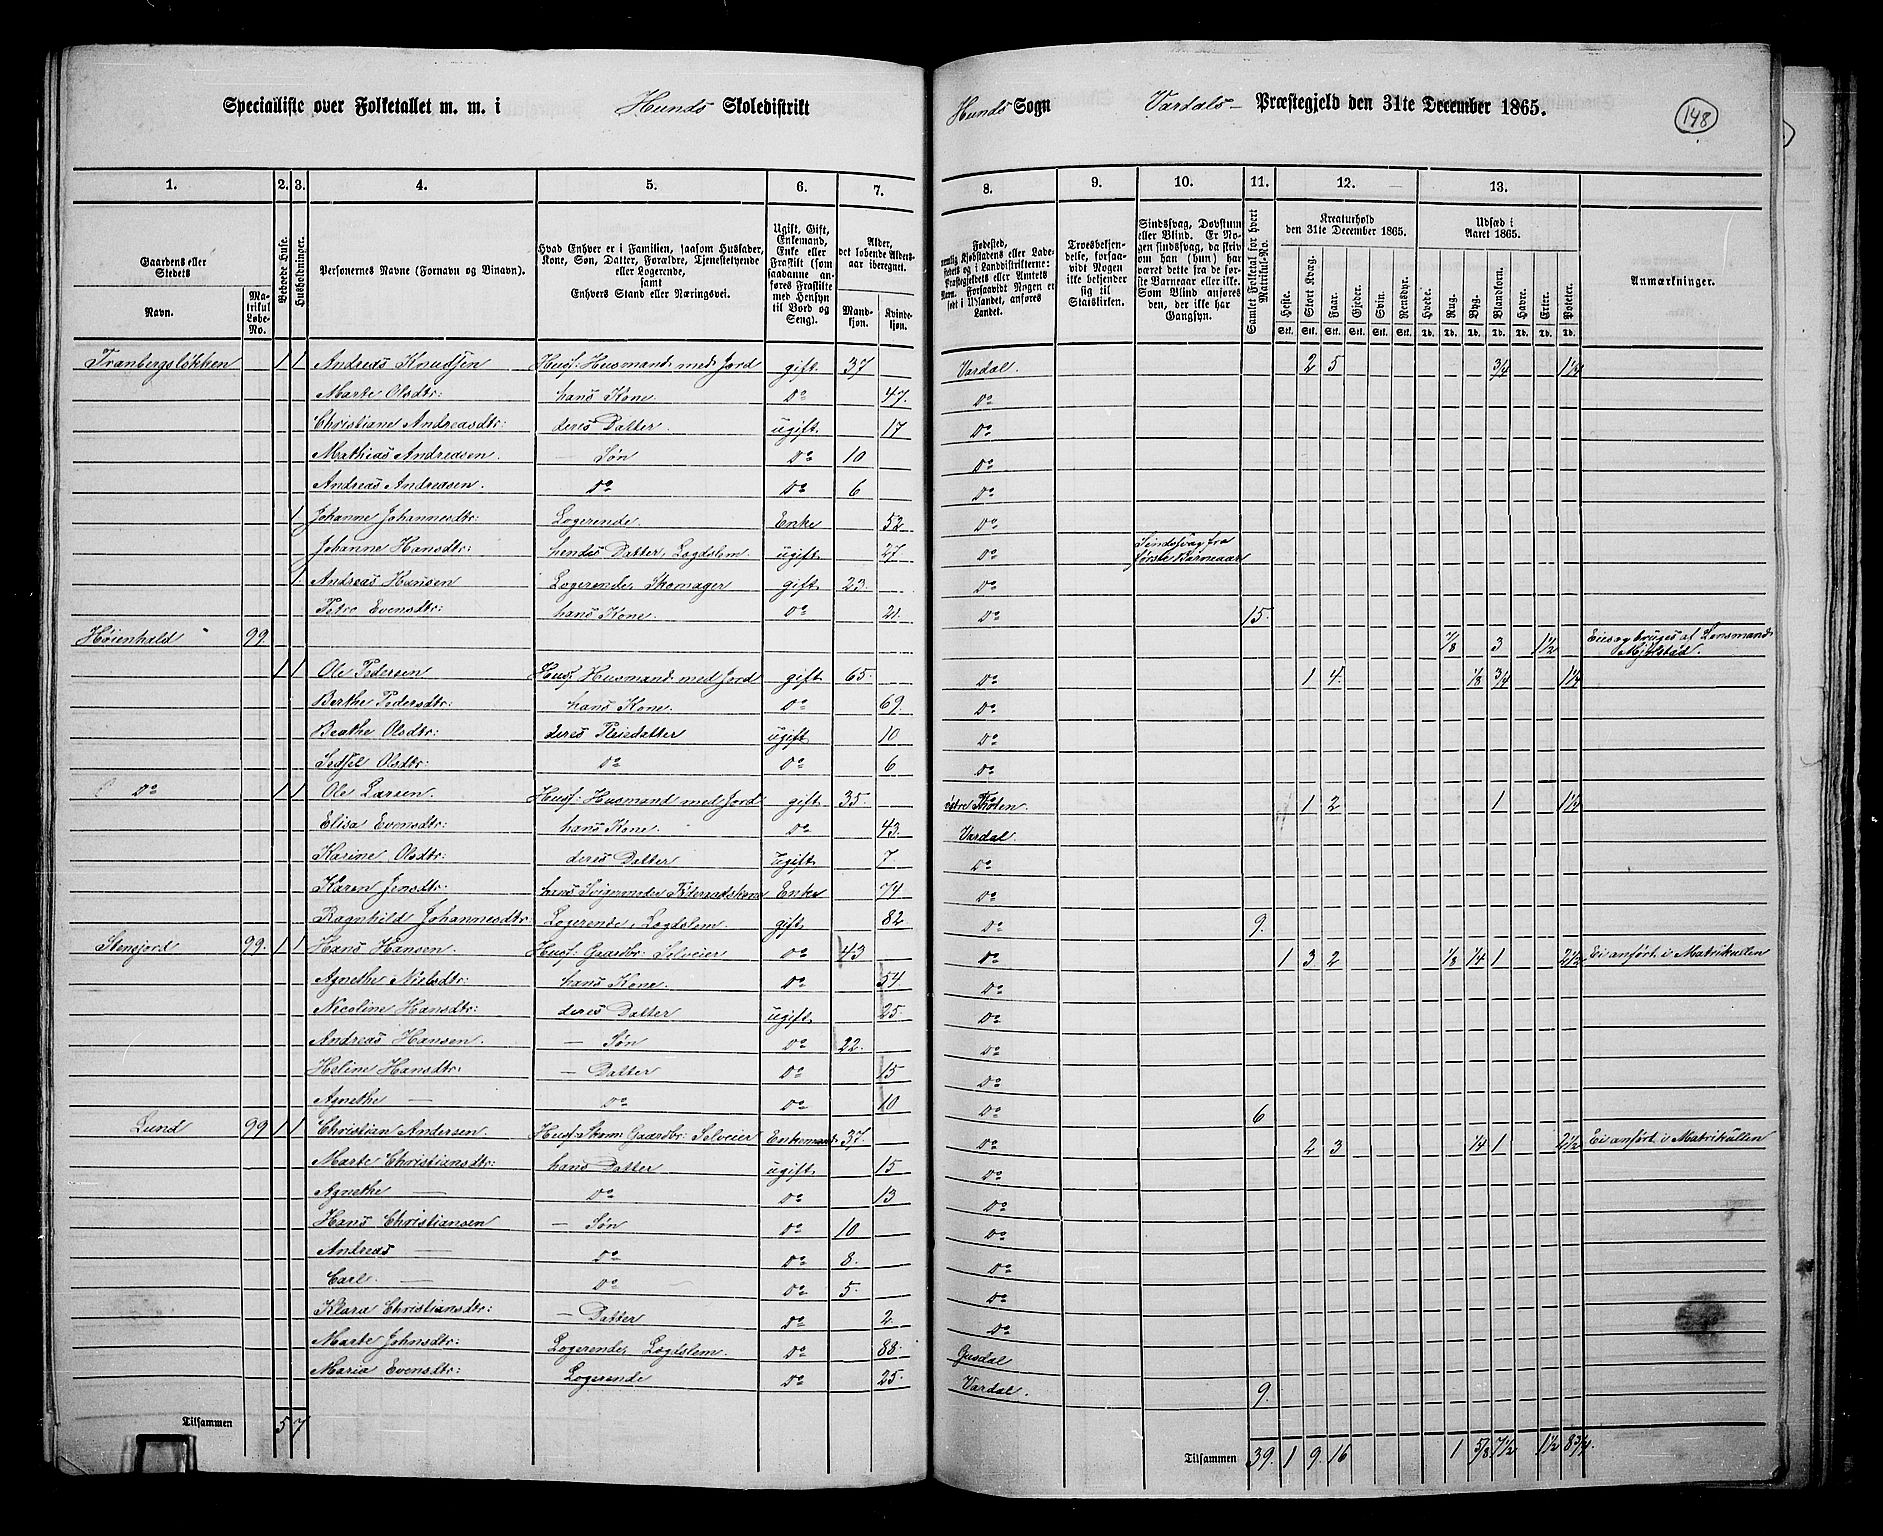 Specialliste over Folketallet m. m. i Hunds Skoledistrikt Hunds Sogn Vardals Præstegjeld den 31te December 1865. 148
1. 2. 3. 4. 5. 6. 7. 8. 9. 10. 11. 12. 13.
Gaardens eller Stedets
Navn. Matrikul Løbe-No.
Beboede Huse.
Husholdninger.
Personernes Navne (Fornavn og Tilnavn).
Hvad Enhver er i Familien, saasom Husfader, Kone, Søn, Datter, Forældre, Tjenestetyende eller Logerende, samt Enhvers Stand eller Næringsvei.
Ugift, Gift, Enkemand, Enke eller Fraskilt (som saadanne anføres Fraskilte med Hensyn til Bord og Seng).
Alder, det løbende Aldersaar iberegnet.
Mandkjøn. Kvindekjøn.
Troesbekjendelse, forsaavidt Nogen ikke bekjender sig til Statskirken.
Sindssvag, Døvstum eller Blind. Er Nogen sindssvag, da skrives om han (hun) har været dette fra de første Barneaar eller ikke. Som Blind anføres den, der ikke har Gangsyn.
Samlet Folketal for hvert Matrikul-No.
Kreaturhold den 31te December 1865.
Heste. Stort Kvæg. Faar. Gjeder. Svin. Rensdyr.
Udsæd i Aaret 1865.
Hvede. Rug. Byg. Blandkorn. Havre. Erter. Poteter.
Anmærkninger.
Tranbergsløkken 1 1 Andreas Knudsen Husf: Husmand med Jord gift 37 Vardal. 2 5 3/4 1 1/2
Marte Olsdtr: hans Kone Do 47. Do
Christiane Andreasdtr: deres Datter. ugift 17 Do
Mathias Andreasen — Søn Do 10 Do
Andreas Andreasen. Do Do 6 Do
1 Johanne Johannesdtr: Logerende. Enke 52 Do
Johanne Hansdtr: hendes Datter, Lægdslem. ugift 27 Do Sindssvag fra første Barneaar
1 Andreas Hansen Logerende, Skomager gift 23. Do
Petro Evensdtr: hans Kone Do 21. Do 15.
Høienhald 99. 3 1 1/2 Eies og bruges af Lensmand Mjølstad.
1 1 Ole Pedersen Husf Husmand med Jord gift 65. Do 1 4. 1/8 3/4 1 1/2
Berthe Pedersdtr: hans Kone. Do 69. Do
Beathe Olsdtr: deres Pleiedatter ugift 10 Do
Sedsel Olsdtr: Do Do 6 Do
Do 1 1 Ole Larsen. Husf: Husmand med Jord gift 35. østre Thoten 1 2 1 1 1/2
Elisa Evensdtr: hans Kone. Do 43. Vardal
Karine Olsdtr: deres Datter ugift 7. Do
Karen Jensdtr: hans Svigermoder Føderaadskone Enke 74 Do
Ragnhild Johannesdtr: Logerende, Lægdslem. gift 82 Do 9.
Stensjord 99. 1 1 Hans Hansen. Husf: Gaardbr: Selveier Do 43 Do 1 3 2 1/8 1/4 1 2 1/2 Ei anført i Matrikullen
Agnethe Nielsdtr: hans Kone. Do 54. Do
Nicoline Hansdtr: deres Datter ugift 25. Do
Andreas Hansen. — Søn Do 22. Do
Heline Hansdtr: — Datter Do 15 Do
Agnethe — Do Do 10 Do 6
Lund 99 1 1 Christian Andersen. Husf: Skom: Gaardbr: Selveier Enkemand 37. Do 2 3 1/4 1 2 1/2 Ei anført i Matrikullen
Marte Christiansdtr: hans Datter ugift 15 Do
Agnethe — Do Do 13 Do
Hans Christiansen — Søn Do 10 Do
Andreas — Do Do 8. Do
Carl. — Do Do 5. Do
Klara Christiansdtr: — Datter Do 2 Do
Marte Johnsdtr: Logerende, Lægdslem. Do 88. Gusdal
Maria Evensdtr: Logerende Do 25. Vardal. 9.
Tilsammen 5 7 Tilsammen 39. 1 9. 16 1 5/8 7 1/2 1 1/2 8 3/4.